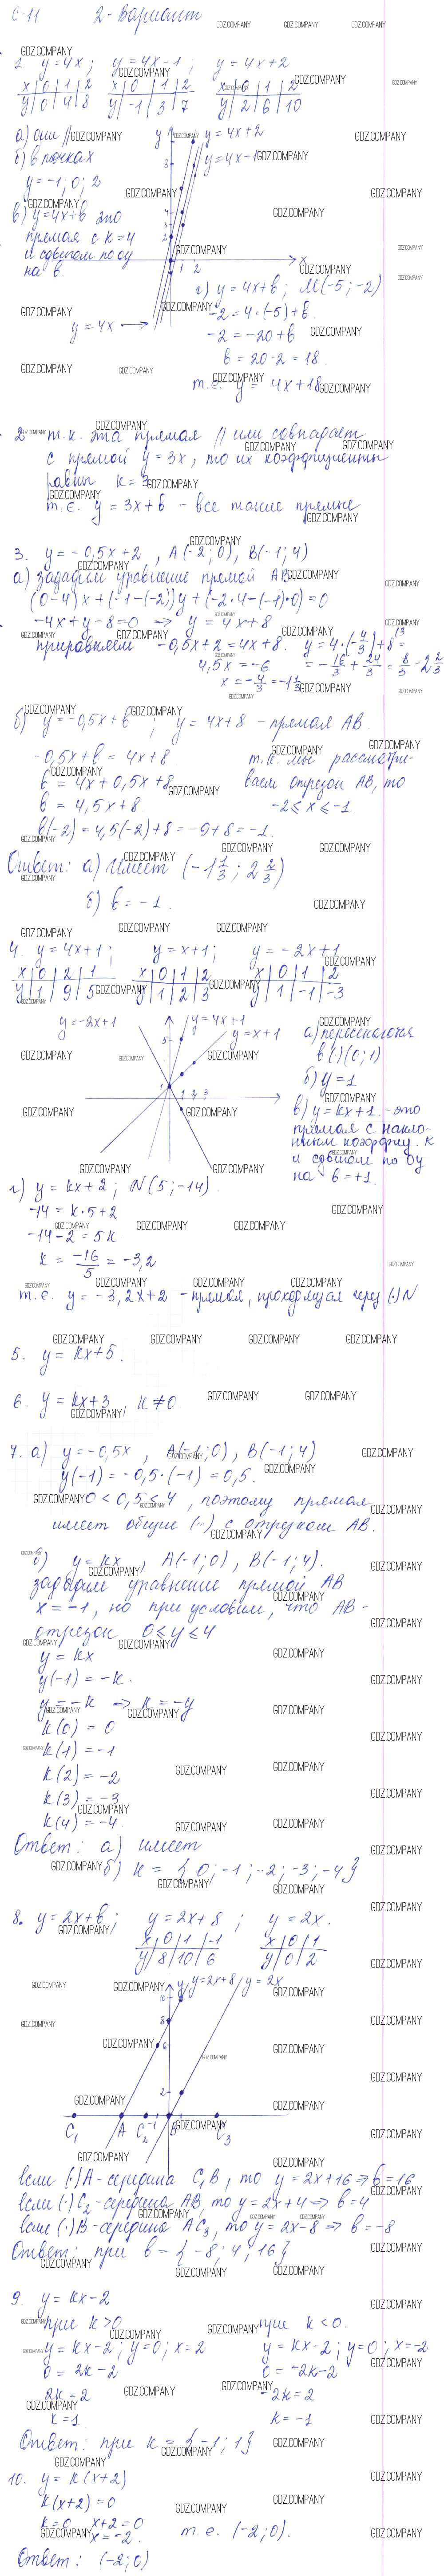 С-11 2-Вариант
1. y=4x; y=4x-1; y=4x+2
x|0|1|2 x|0|1|2 x|0|1|2
y|0|4|8 y|-1|3|7 y|2|6|10
а) они //
б) в точках
y=-1; 0; 2
в) y=4x+b это
прямая с k=4
и сдвигом по oy
на b.
y
y=4x+2
y=4x-1
8
4
3
2
1 2
x
y=4x
г) y=4x+b; M(-5;-2)
-2=4·(-5)+b.
-2=-20+b
b=20-2=18.
т.е. y=4x+18
2. т.к. эта прямая // или совпадает
с прямой y=3x, то их коэффициенты
равны k=3.
т.е. y=3x+b - все такие прямые
3. y=-0,5x+2, A(-2;0), B(-1;4)
а) зададим уравнение прямой AB
(0-4)x+(-1-(-2))y+(-2·4-(-1)·0)=0
-4x+y-8=0 → y=4x+8
приравняем -0,5x+2=4x+8. y=4·(-4/3)+8=
4,5x=-6 =-16/3+24/3=8/3=2 2/3
x=-4/3=-1 1/3
б) y=-0,5x+b; y=4x+8 - прямая AB.
-0,5x+b=4x+8. т.к. мы рассматри-
b=4x+0,5x+8 ваем отрезок AB, то
b=4,5x+8 -2≤x≤-1.
b(-2)=4,5(-2)+8=-9+8=-1.
Ответ: а) Имеет (-1 1/3; 2 2/3)
б) b=-1.
4. y=4x+1; y=x+1; y=-2x+1
x|0|2|1 x|0|1|2 x|0|1|2
y|1|9|5 y|1|2|3 y|1|-1|-3
y=-2x+1
y=4x+1
y=x+1
5
1
1 2 3
а) пересекаются
в (·)(0;1)
б) y=1
в) y=kx+1. - это
прямая с накло-
нным коэффиц. k
и сдвигом по oy
на b=+1.
г) y=kx+2; N(5;-14).
-14=k·5+2
-14-2=5k
k=-16/5=-3,2
т.е. y=-3,2x+2 - прямая, проходящая через (·)N
5. y=kx+5.
6. y=kx+3, k≠0
7. а) y=-0,5x, A(-1;0), B(-1;4)
y(-1)=-0,5·(-1)=0,5.
0<0,5<4, поэтому прямая
имеет общие (··) с отрезком AB.
б) y=kx, A(-1;0), B(-1;4).
зададим уравнение прямой AB
x=-1, но при условии, что AB-
отрезок 0≤y≤4
y=kx
y(-1)=-k.
y=-k → k=-y
k(0)=0
k(1)=-1
k(2)=-2
k(3)=-3
k(4)=-4.
Ответ: а) имеет
б) k={0;-1;-2;-3;-4}
8. y=2x+b; y=2x+8; y=2x.
x|0|1|-1 x|0|1
y|8|10|6 y|0|2
y
y=2x+8
y=2x
10
8
6
2
C₁ A C₂ -1 B C₃
если (·)A-середина C₁B, то y=2x+16⇒b=16
если (·)C₂-середина AB, то y=2x+4⇒b=4
если (·)B-середина AC₃, то y=2x-8⇒b=-8
Ответ: при b={-8; 4; 16}
9. y=kx-2
при k>0 при k<0.
y=kx-2; y=0; x=2 y=kx-2; y=0; x=-2
0=2k-2 0=-2k-2
2k=2 -2k=2
k=1 k=-1
Ответ: при k={-1; 1}
10. y=k(x+2)
k(x+2)=0
k=0 x+2=0
x=-2. т.е. (-2;0).
Ответ: (-2;0)
GDZ.COMPANY